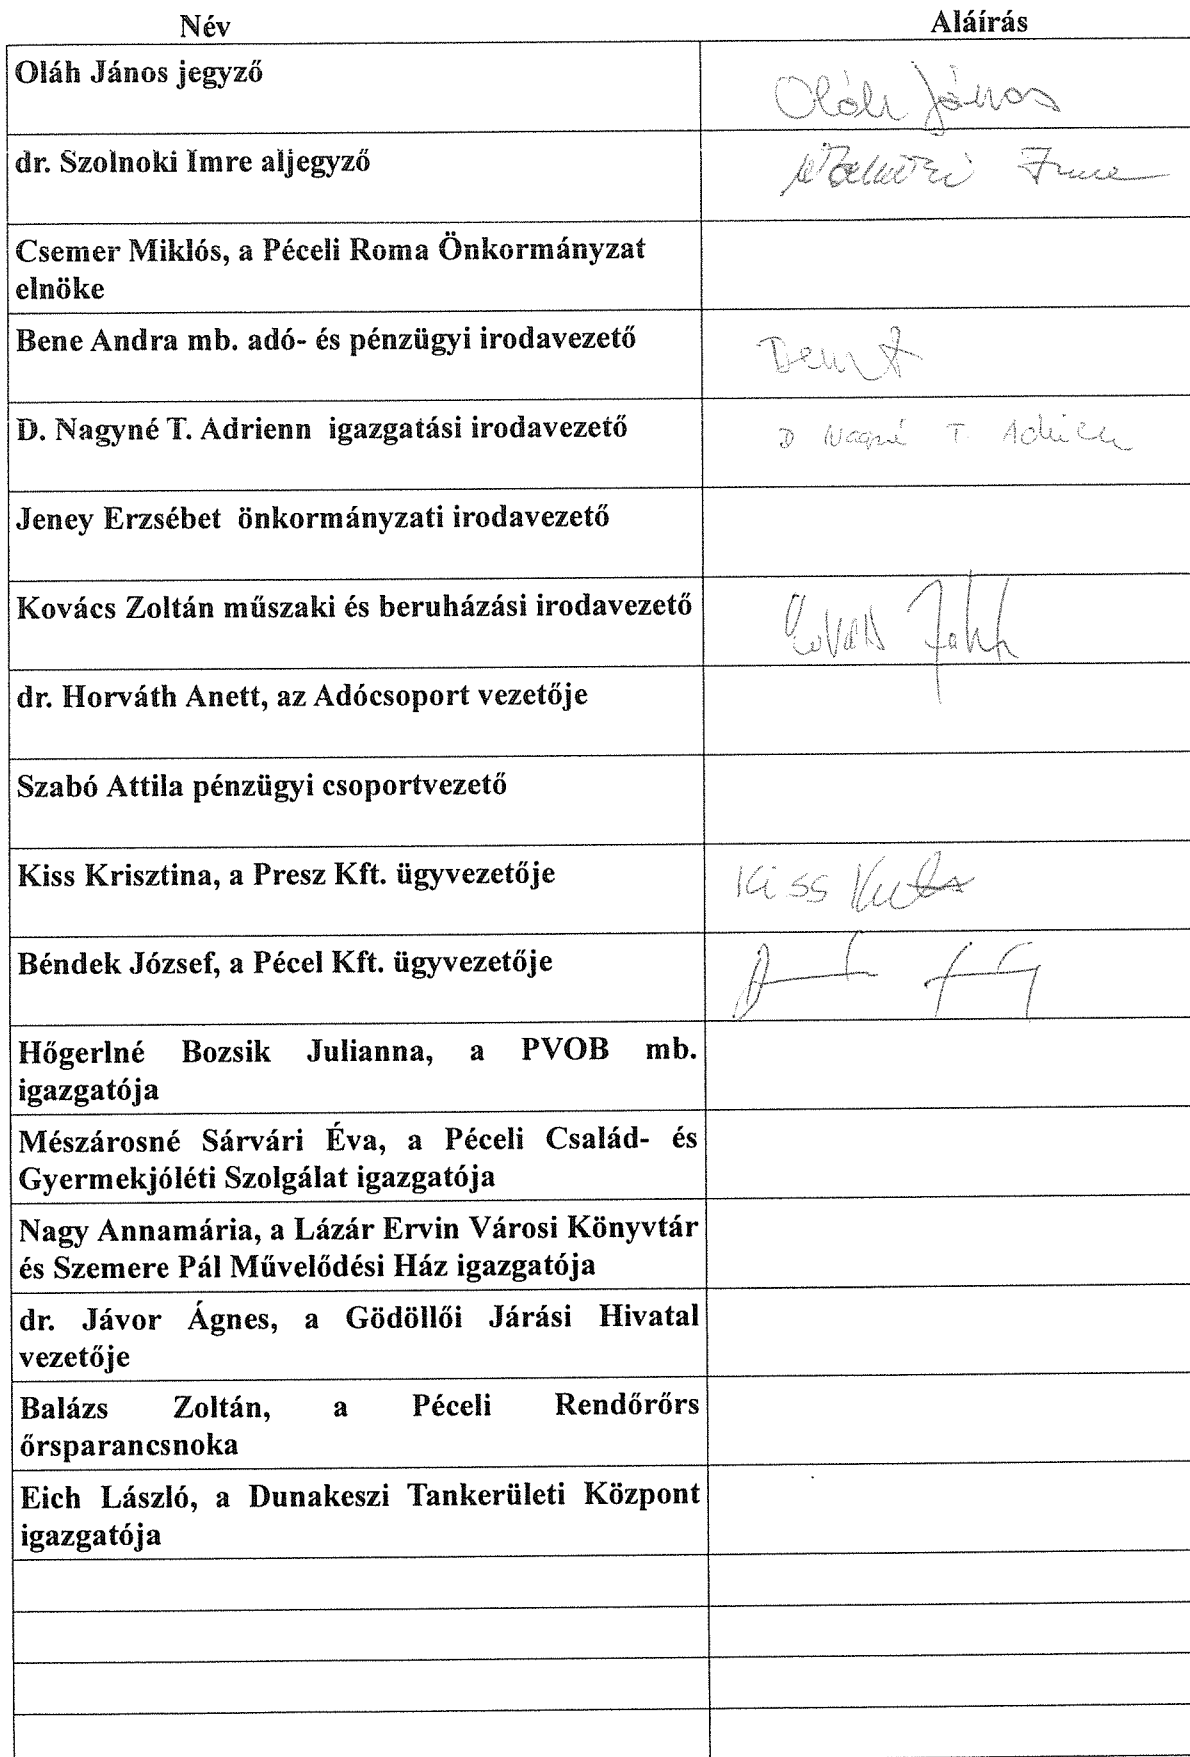 Név Aláírás
Oláh János jegyző Oláh János
dr. Szolnoki Imre aljegyző Szolnoki Imre
Csemer Miklós, a Péceli Roma Önkormányzat
elnöke
Bene Andra mb. adó- és pénzügyi irodavezető
D. Nagyné T. Adrienn igazgatási irodavezető D Nagyné T. Adrienn
Jeney Erzsébet önkormányzati irodavezető
Kovács Zoltán műszaki és beruházási irodavezető
dr. Horváth Anett, az Adócsoport vezetője
Szabó Attila pénzügyi csoportvezető
Kiss Krisztina, a Presz Kft. ügyvezetője Kiss
Béndek József, a Pécel Kft. ügyvezetője
Hőgerlné Bozsik Julianna, a PVOB mb.
igazgatója
Mészárosné Sárvári Éva, a Péceli Család- és
Gyermekjóléti Szolgálat igazgatója
Nagy Annamária, a Lázár Ervin Városi Könyvtár
és Szemere Pál Művelődési Ház igazgatója
dr. Jávor Ágnes, a Gödöllői Járási Hivatal
vezetője
Balázs Zoltán, a Péceli Rendőrőrs
őrsparancsnoka
Eich László, a Dunakeszi Tankerületi Központ
igazgatója